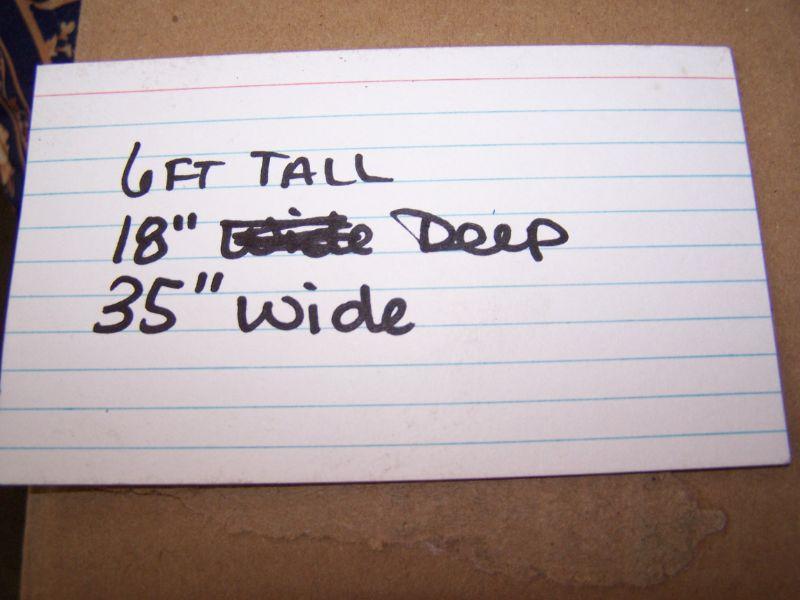 6FT TALL
18" Deep
35" wide